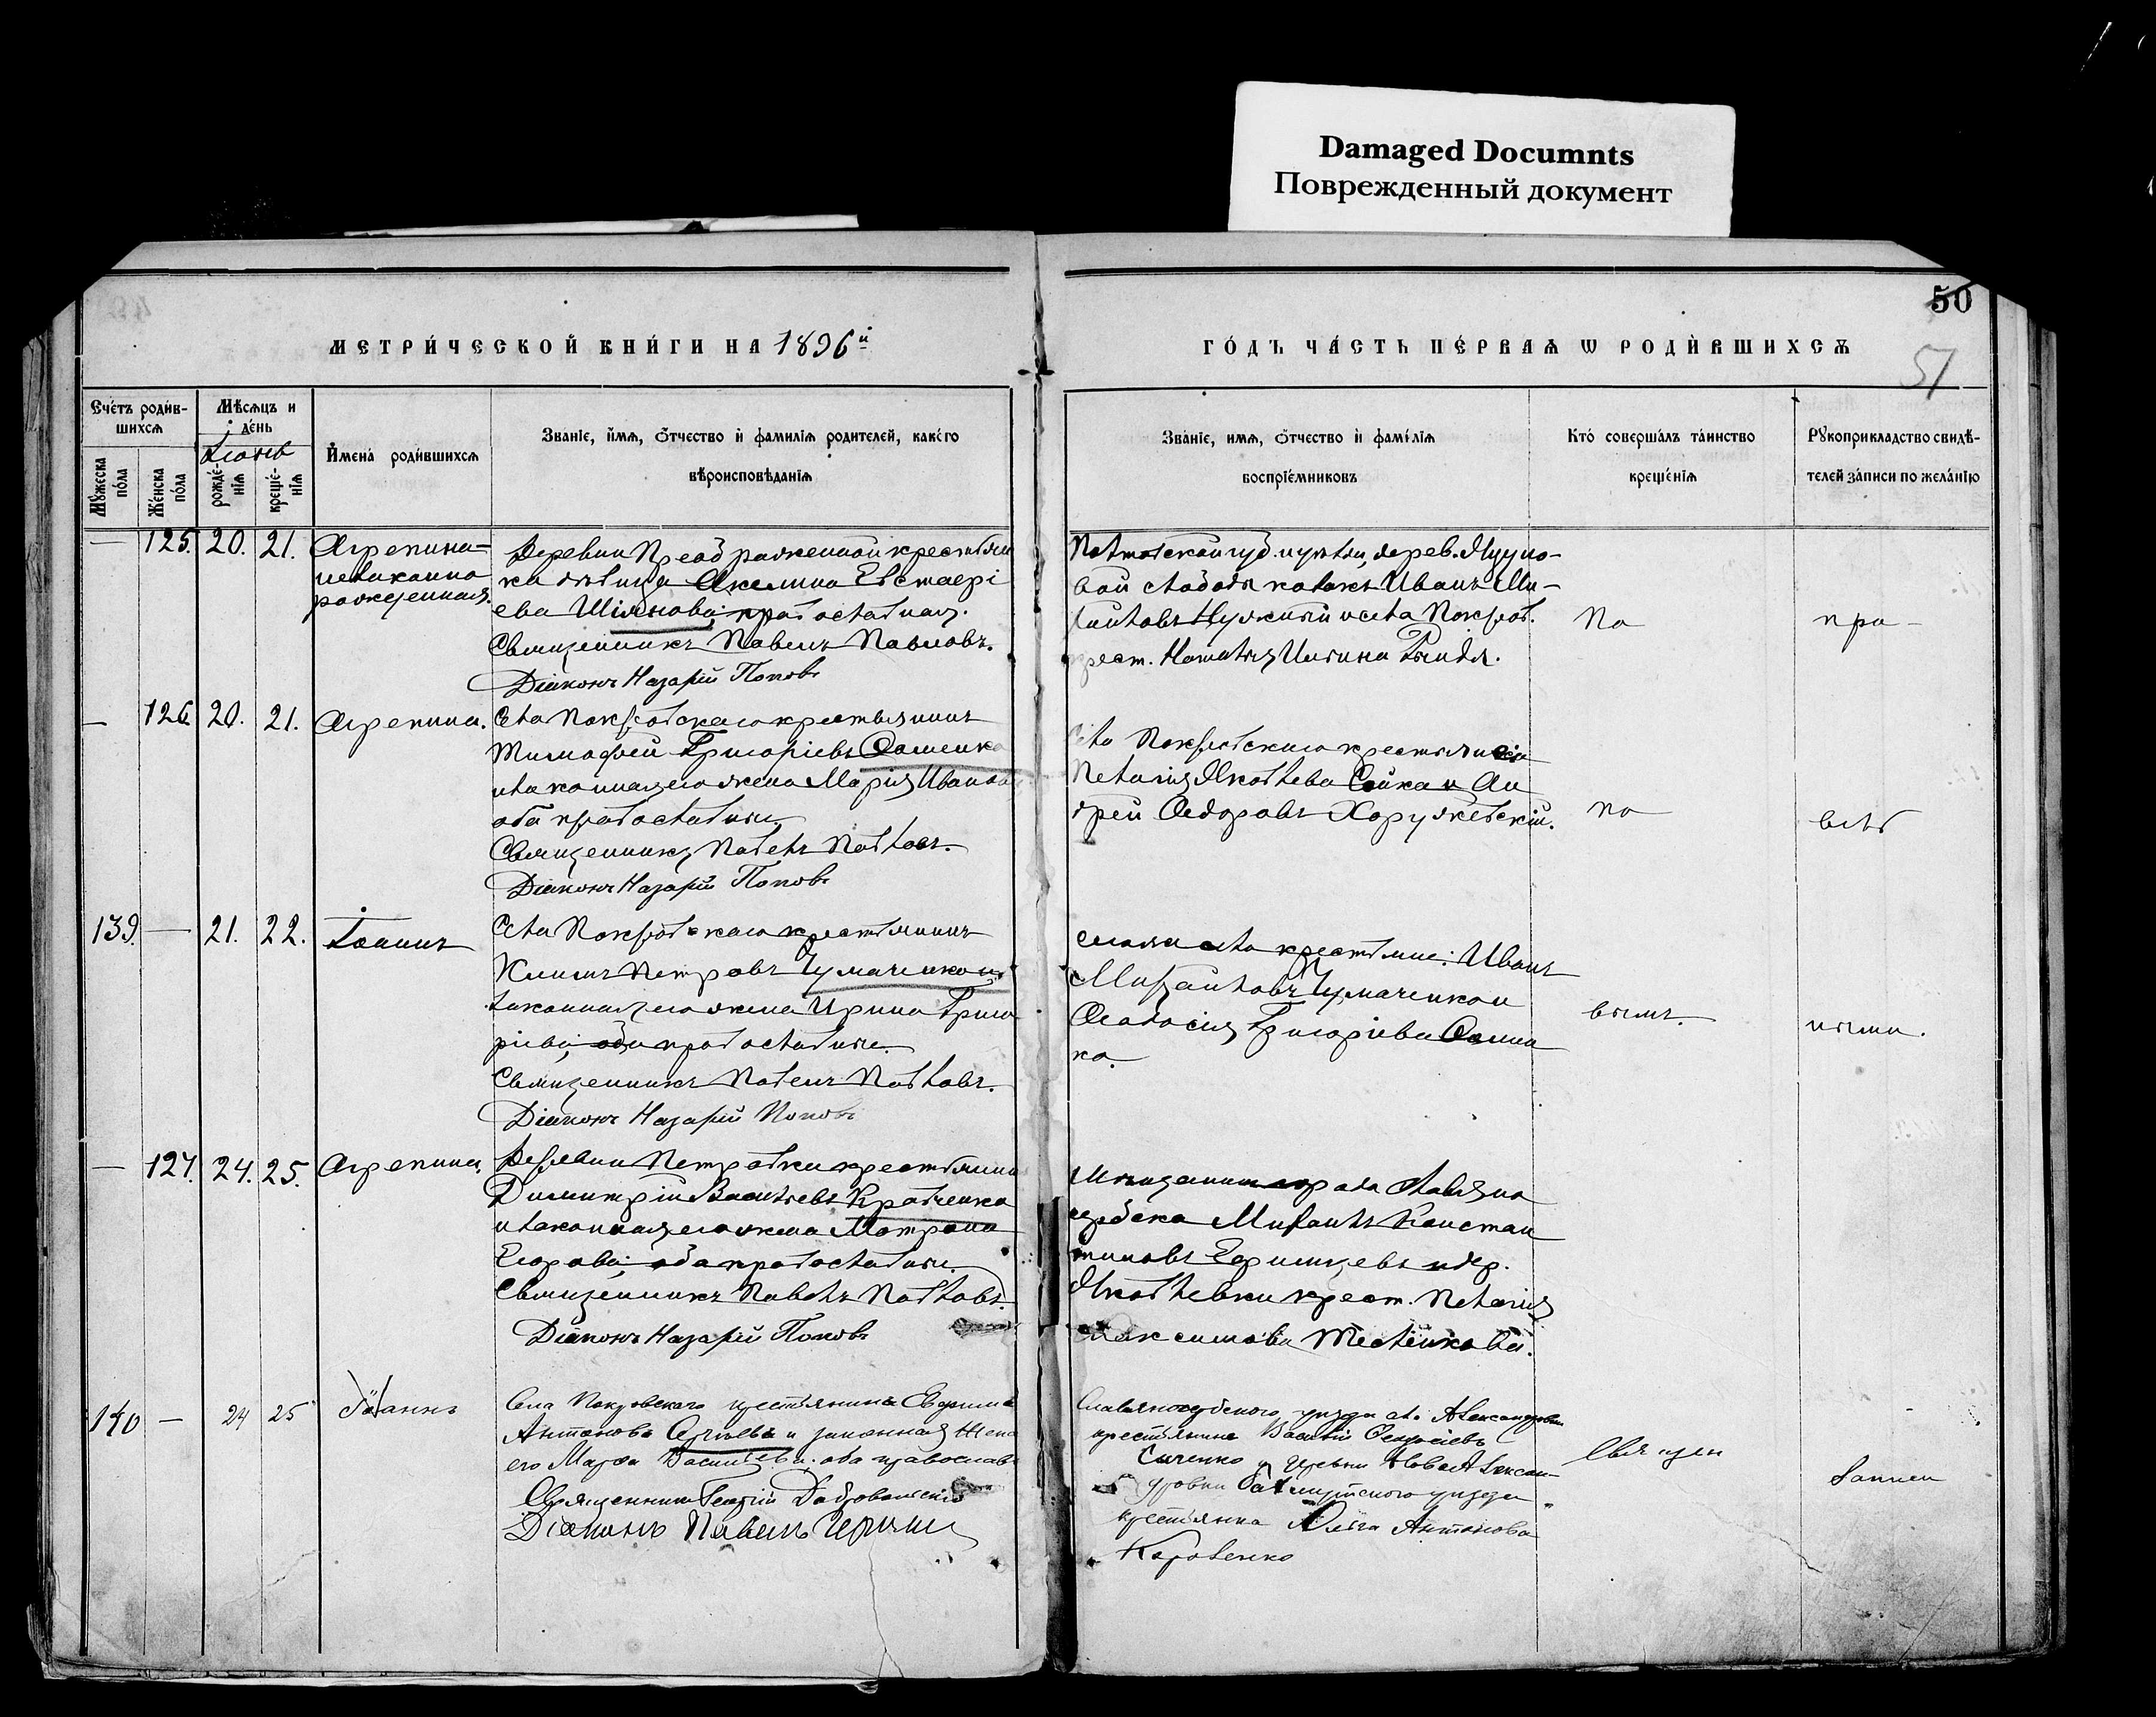 Damaged Documnts
Поврежденный документ
50
51
МЕТРИ́ЧЕСКОЙ КНИ́ГИ НА 1896й
ГО́ДЪ ЧА́СТЬ ПЕ́РВАѦ Ѡ РОДИ́ВШИХСѦ
Сче́тъ роди́в-
шихсѧ
Мѣсѧцъ и
де́нь
Іюнь
Мꙋжеска по́ла
Же́нска по́ла
рожде́-
нїѧ
креще́-
нїѧ
И҆мена̀ роди́вшихсѧ
Званїе, и҆́мѧ, ѻ҆́тчество и҆ фамилїѧ родителей, како́гѡ
вѣроисповѣданїѧ
Зва́нїе, имѧ, ѻ҆́тчество и҆ фами́лїѧ
воспрїе́мниковъ
Кто̀ соверша́лъ та́инство
креще́нїѧ
Рꙋкоприкладство свидѣ-
телей за́писи по жела́нїю
— 125. 20. 21. Агрепина-
незаконно
рожденная.
Деревни Преображенной крестьян
ка девица Акелина Евстафрі
ева Шіянова, православная.
Священникъ Павелъ Павловъ.
Діаконъ Назарій Поповъ
Полтавской губ.
вой слободы козакъ Иванъ Ми-
хайловъ и села Покров.
крест. Наталья
По
пра-
— 126. 20. 21. Агрепина.
Села Покровскаго крестьянинъ
Тимофей Григоріевъ Фоменко
и законная его жена Марія Иванова
оба православные.
Священникъ Павелъ Павловъ.
Діаконъ Назарій Поповъ
Села Покровскаго крестьяне
Пелагія Яковлева Сойка и Ан
дрей Федоровъ Хоружевскій.
по
влѣ
139. — 21. 22. Іоаннъ
Села Покровскаго крестьянинъ
Климъ Петровъ Чумаченко и
законная его жена Ирина Григо
ріева, оба православные.
Священникъ Павелъ Павловъ.
Діаконъ Назарій Поповъ
села крестьяне: Иванъ
Михайловъ Чумаченко и
Феодосія Григоріева Фомен
ко.
вымъ.
ными.
— 127. 24. 25. Агрепина.
Деревни Петровки крестьянинъ
Димитрій Васильевъ Кравченко
и законная его жена Матрона
Егорова, оба православные.
Священникъ Павелъ Павловъ.
Діаконъ Назарій Поповъ
Мещанинъ города Славяно
сербска Михаилъ Констан
тиновъ и дер.
Яковлевки крест. Пелагія
Максимова
140 — 24 25 Іоаннъ
Села Покровского крестьянинъ Евдоким
Антоновъ и законная жена
его Марфа Васильева оба православ
Священникъ Георгій Добровольскій
Діаконъ Павелъ
Славяносербского уезда с. Александровки
крестьянинъ Василій Феодосіевъ
и Ново Алексан-
дровки Бахмутского уезда
крестьянка Ольга Антонова
Коровенко
Священ